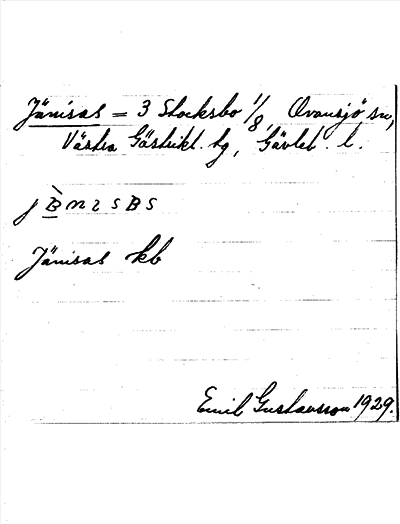 Jänisas = 3 Stocksbo 1/8, Ovansjö sn,
Västra Gästrikl. hg, Gävleb. l.
Jänisas kb
Emil Gustavsson 1929.